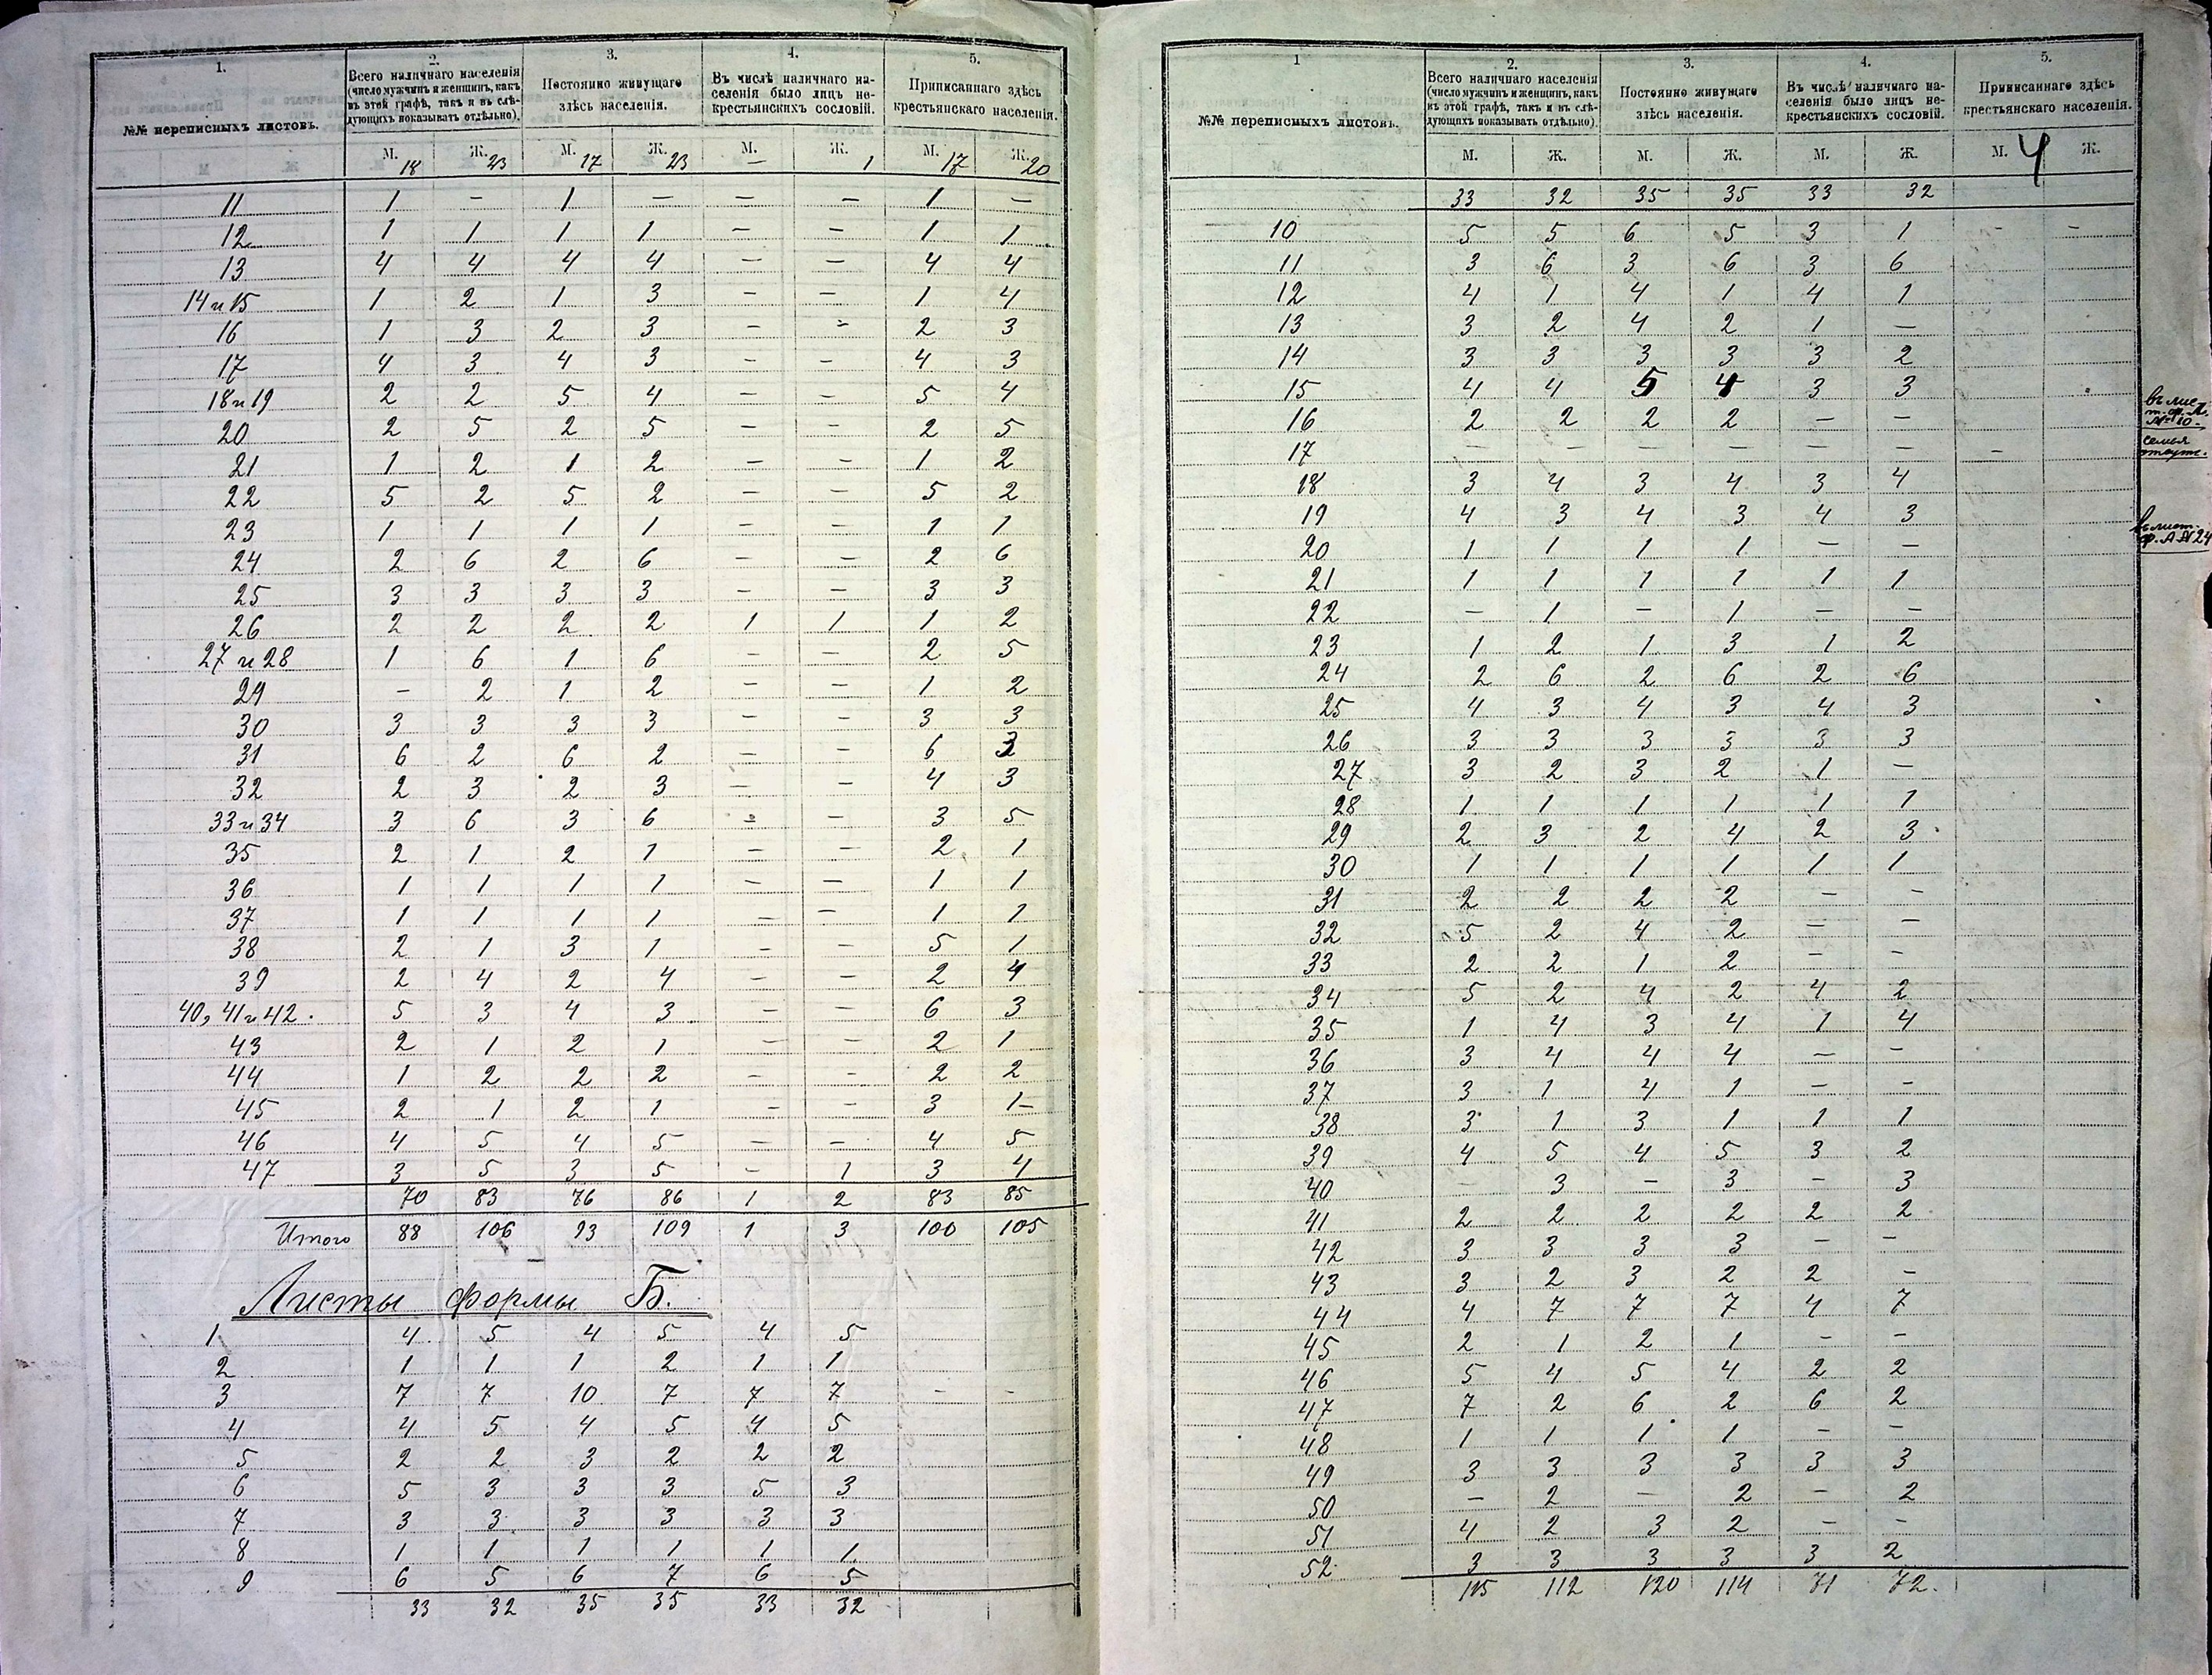 1. 2. 3. 4. 5.
№№ переписныхъ листовъ. Всего наличнаго населенія (число мужчинъ и женщинъ, какъ въ этой графѣ, такъ и въ слѣдующихъ показывать отдѣльно). Постоянно живущаго здѣсь населенія. Въ числѣ наличнаго населенія было лицъ некрестьянскихъ сословій. Приписаннаго здѣсь крестьянскаго населенія.
М. Ж. М. Ж. М. Ж. М. Ж.
18 23 17 23 — 1 17 20
11 1 — 1 — — — 1 —
12 1 1 1 1 — — 1 1
13 4 4 4 4 — — 4 4
14 и 15 1 2 1 3 — — 1 4
16 1 3 2 3 — — 2 3
17 4 3 4 3 — — 4 3
18 и 19 2 2 5 4 — — 5 4
20 2 5 2 5 — — 2 5
21 1 2 1 2 — — 1 2
22 5 2 5 2 — — 5 2
23 1 1 1 1 — — 1 1
24 2 6 2 6 — — 2 6
25 3 3 3 3 — — 3 3
26 2 2 2 2 1 1 1 2
27 и 28 1 6 1 6 — — 2 5
29 — 2 1 2 — — 1 2
30 3 3 3 3 — — 3 3
31 6 2 6 2 — — 6 3
32 2 3 2 3 — — 4 3
33 и 34 3 6 3 6 — — 3 5
35 2 1 2 1 — — 2 1
36 1 1 1 1 — — 1 1
37 1 1 1 1 — — 1 1
38 2 1 3 1 — — 5 1
39 2 4 2 4 — — 2 4
40, 41 и 42. 5 3 4 3 — — 6 3
43 2 1 2 1 — — 2 1
44 1 2 2 2 — — 2 2
45 2 1 2 1 — — 3 1
46 4 5 4 5 — — 4 5
47 3 5 3 5 — 1 3 4
70 83 76 86 1 2 83 85
Итого 88 106 93 109 1 3 100 105
Листы формы Б.
1 4 5 4 5 4 5
2 1 1 1 2 1 1
3 7 7 10 7 7 7 — —
4 4 5 4 5 4 5
5 2 2 3 2 2 2
6 5 3 3 3 5 3
7 3 3 3 3 3 3
8 1 1 1 1 1 1
9 6 5 6 7 6 5
33 32 35 35 33 32
1 2. 3. 4. 5.
№№ переписныхъ листовъ. Всего наличнаго населенія (число мужчинъ и женщинъ, какъ въ этой графѣ, такъ и въ слѣдующихъ показывать отдѣльно). Постоянно живущаго здѣсь населенія. Въ числѣ наличнаго населенія было лицъ некрестьянскихъ сословій. Приписаннаго здѣсь крестьянскаго населенія.
М. Ж. М. Ж. М. Ж. М. 4 Ж.
33 32 35 35 33 32
10 5 5 6 5 3 1 — —
11 3 6 3 6 3 6
12 4 1 4 1 4 1
13 3 2 4 2 1 —
14 3 3 3 3 3 2
15 4 4 5 4 3 3
16 2 2 2 2 — —
въ лист. ф. А. № 10.
17 — — — — — — —
семья отсутс.
18 3 4 3 4 3 4
19 4 3 4 3 4 3
20 1 1 1 1 — —
въ лист. ф. А № 24
21 1 1 1 1 1 1
22 — 1 — 1 — —
23 1 2 1 3 1 2
24 2 6 2 6 2 6
25 4 3 4 3 4 3
26 3 3 3 3 3 3
27 3 2 3 2 1 —
28 1 1 1 1 1 1
29 2 3 2 4 2 3
30 1 1 1 1 1 1
31 2 2 2 2 — —
32 5 2 4 2 — —
33 2 2 1 2 — —
34 5 2 4 2 4 2
35 1 4 3 4 1 4
36 3 4 4 4 — —
37 3 1 4 1 — —
38 3 1 3 1 1 1
39 4 5 4 5 3 2
40 — 3 — 3 — 3
41 2 2 2 2 2 2
42 3 3 3 3 — —
43 3 2 3 2 2 —
44 4 7 7 7 4 7
45 2 1 2 1 — —
46 5 4 5 4 2 2
47 7 2 6 2 6 2
48 1 1 1 1 — —
49 3 3 3 3 3 3
50 — 2 — 2 — 2
51 4 2 3 2 — —
52 3 3 3 3 3 2
115 112 120 114 71 72.